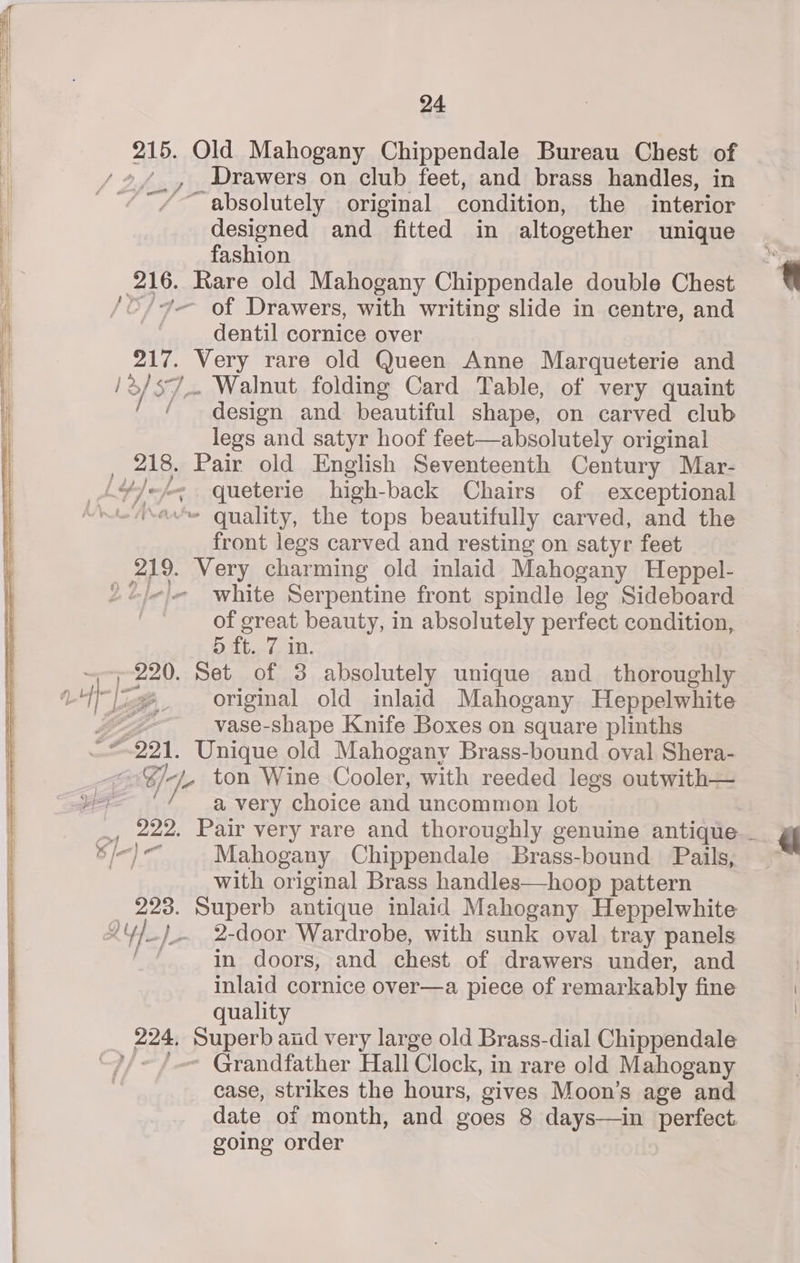 24
215. Old Mahogany Chippendale Bureau Chest of
Drawers on club feet, and brass handles, in
absolutely original condition, the interior
designed and fitted in altogether unique
fashion
216. Rare old Mahogany Chippendale double Chest
of Drawers, with writing slide in centre, and
dentil cornice over
217. Very rare old Queen Anne Marqueterie and
Walnut folding Card Table, of very quaint
design and beautiful shape, on carved club
legs and satyr hoof feet—absolutely original
218. Pair old English Seventeenth Century Mar-
queterie high-back Chairs of exceptional
quality, the tops beautifully carved, and the
front legs carved and resting on satyr feet
219. Very charming old inlaid Mahogany Heppel-
white Serpentine front spindle leg Sideboard
of great beauty, in absolutely perfect condition,
5 ft. 7 in.
220. Set of 3 absolutely unique and thoroughly
original old inlaid Mahogany Heppelwhite
vase-shape Knife Boxes on square plinths
221. Unique old Mahogany Brass-bound oval Shera-
ton Wine Cooler, with reeded legs outwith—
a very choice and uncommon lot
222. Pair very rare and thoroughly genuine antique
Mahogany Chippendale Brass-bound Pails,
with original Brass handles—hoop pattern
223. Superb antique inlaid Mahogany Heppelwhite
2-door Wardrobe, with sunk oval tray panels
in doors, and chest of drawers under, and
inlaid cornice over—a piece of remarkably fine
quality
224. Superb and very large old Brass-dial Chippendale
Grandfather Hall Clock, in rare old Mahogany
case, strikes the hours, gives Moon's age and
date of month, and goes 8 days—in perfect
going order